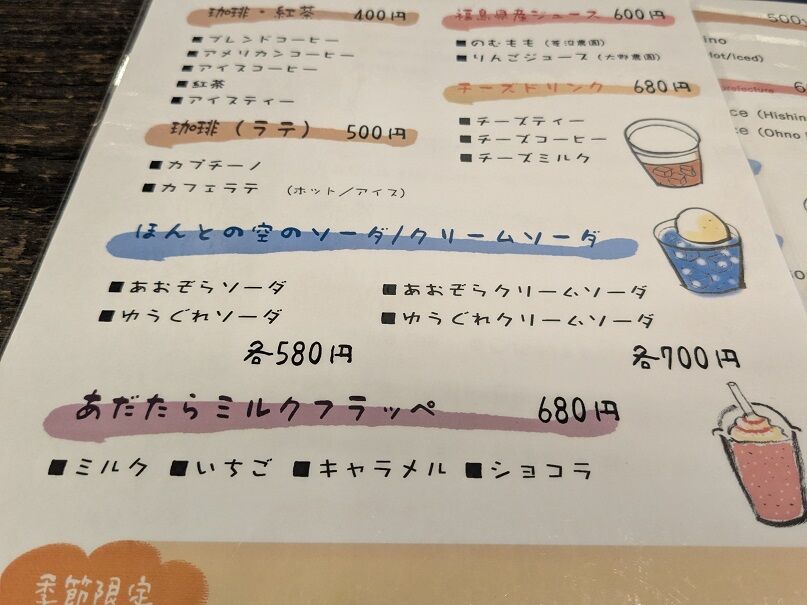 珈琲・紅茶 400円
■ブレンドコーヒー
■アメリカンコーヒー
■アイスコーヒー
■紅茶
■アイスティー
珈琲(ラテ) 500円
■カプチーノ
■カフェラテ (ホット/アイス)
福島県産ジュース 600円
■のむもも(菱沼農園)
■りんごジュース(大野農園)
チーズドリンク 680円
■チーズティー
■チーズコーヒー
■チーズミルク
ほんとの空のソーダ/クリームソーダ
■あおぞらソーダ ■あおぞらクリームソーダ
■ゆうぐれソーダ ■ゆうぐれクリームソーダ
各580円 各700円
あだたらミルクフラッペ 680円
■ミルク ■いちご ■キャラメル ■ショコラ
季節限定
500
ot/Iced)
(Hishin
(Ohno